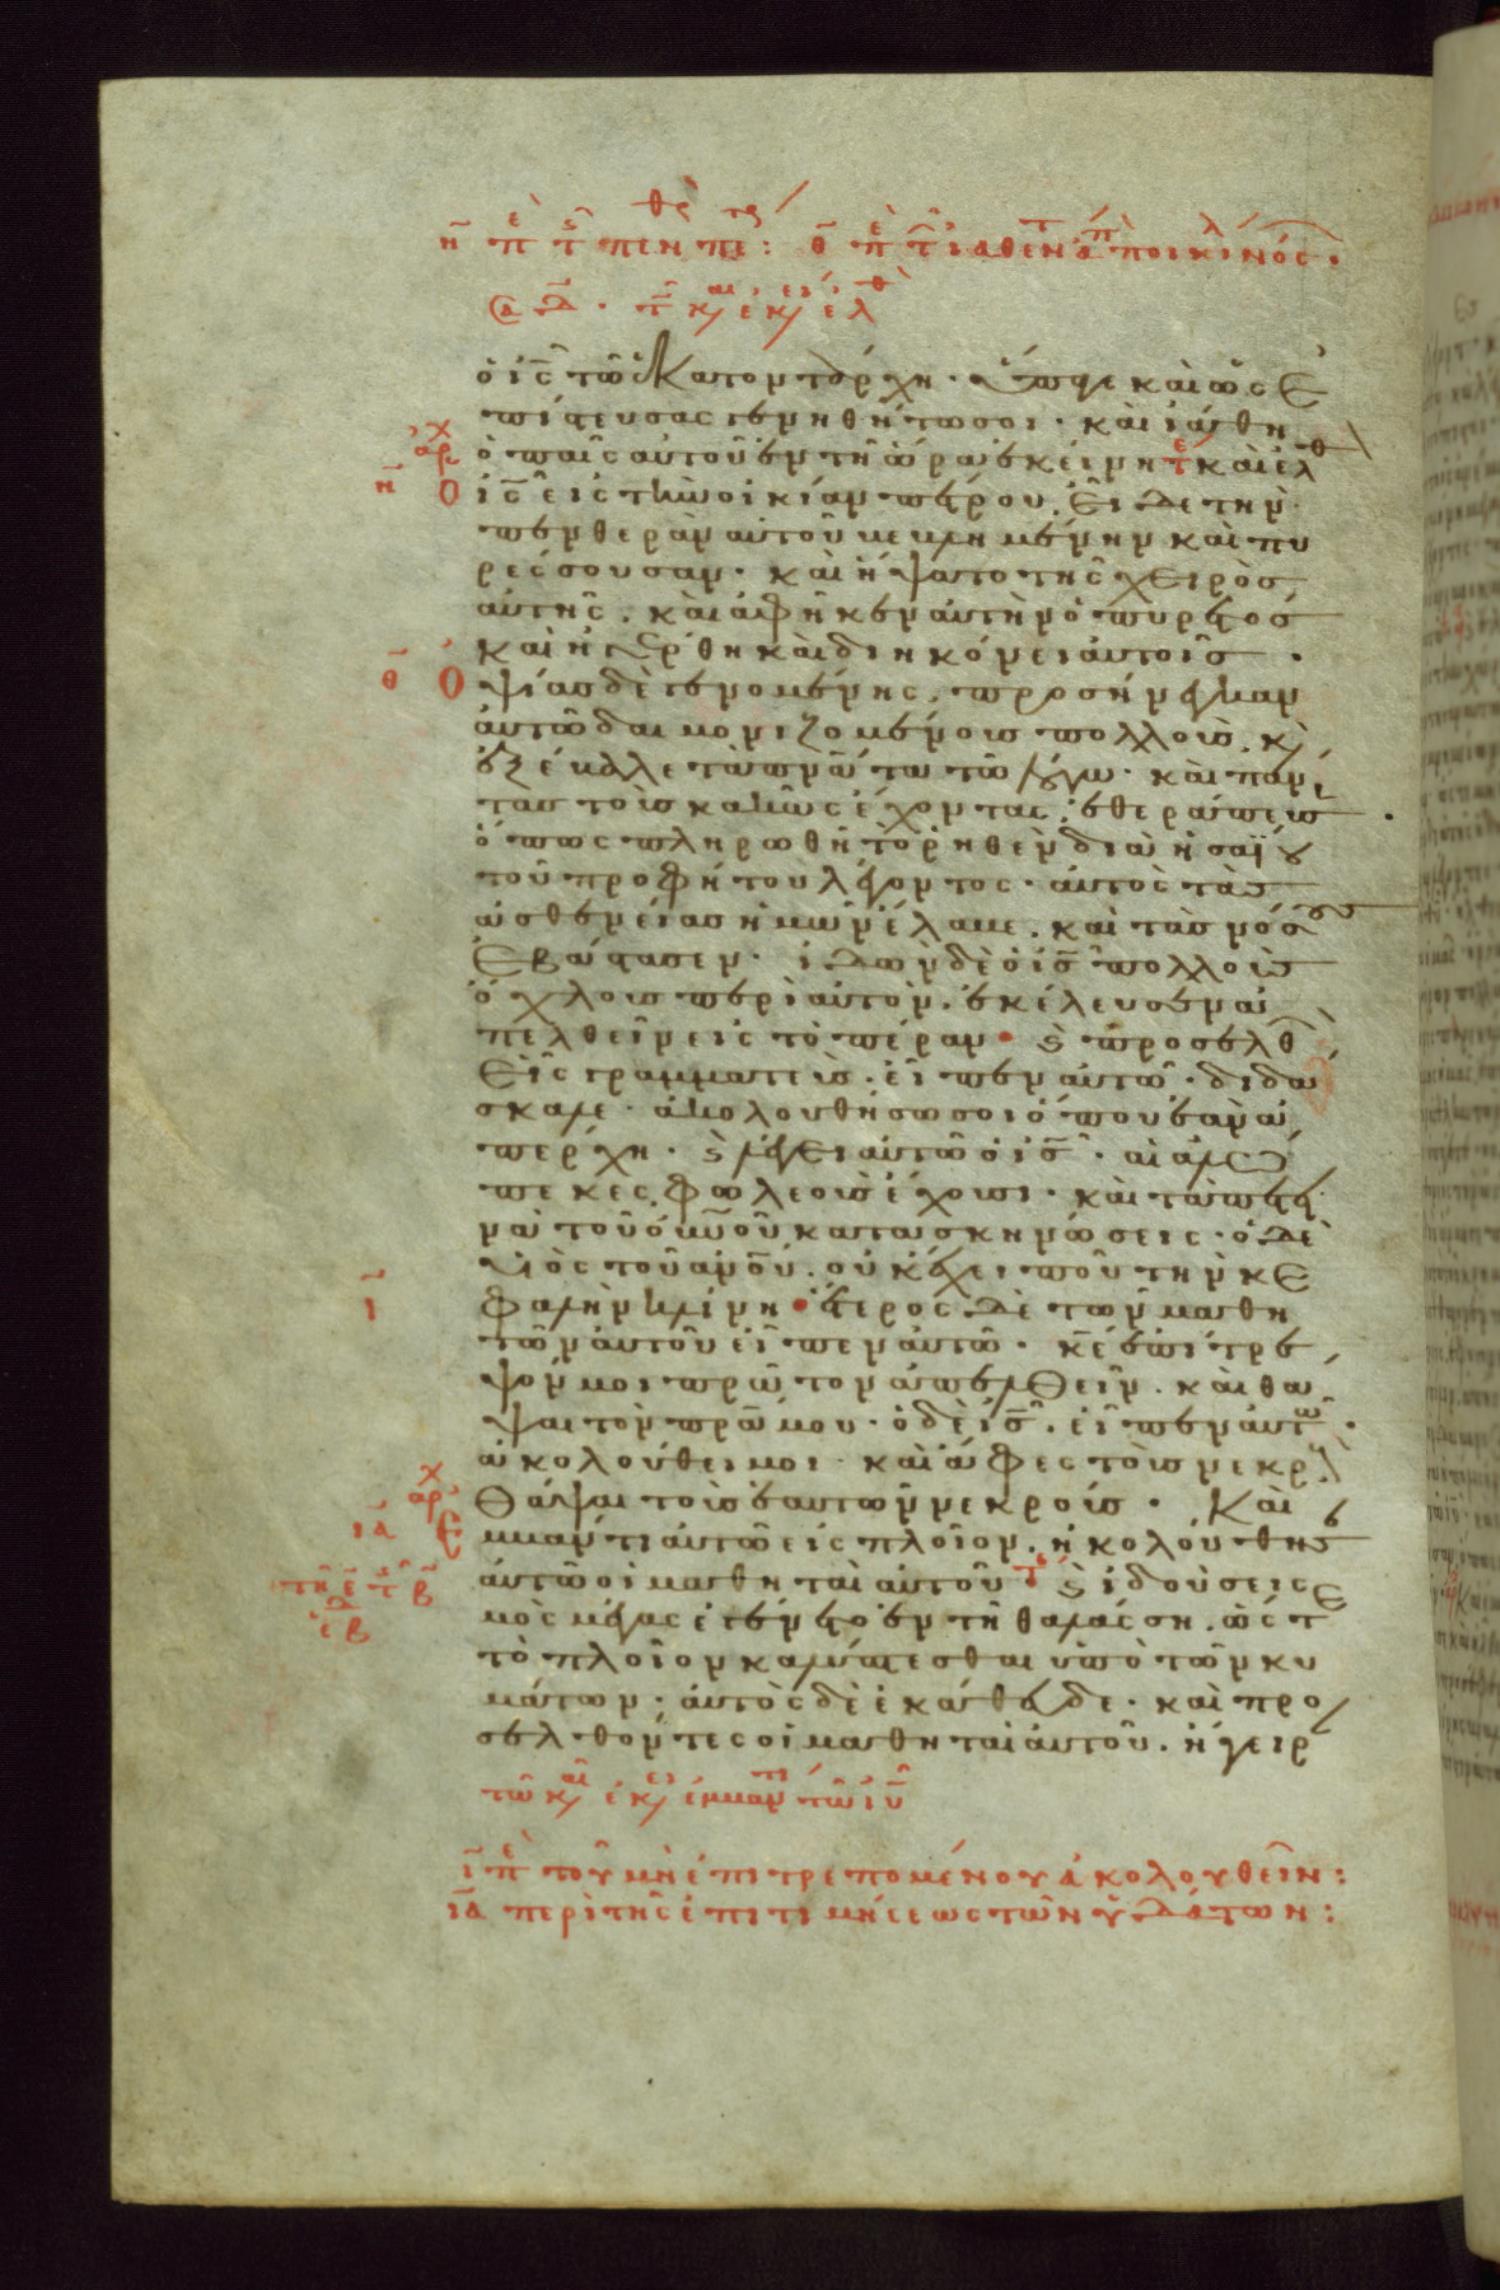 η πε τς πενθερας πετρου: θ πε τ ιαθεντ απο ποικιλ νος.
τ κ εκ ελθ
ὁ ις τῶ ἑκατοντάρχη· ὕπαγε καὶ ὡς ἐ
πίστευσας γενηθήτω σοι· καὶ ἰάθη
ὁ παῖς αὐτοῦ ἐν τῆ ὥρα ἐκείνη τε καὶ ἐλθ
αρχ
η Ὁ ις εἰς τὴν οἰκίαν πέτρου. εἶδε τὴν
πενθερὰν αὐτοῦ βεβλημένην καὶ πυ
ρέσσουσαν· καὶ ἥψατο τῆς χειρὸς
αὐτῆς. καὶ ἀφῆκεν αὐτὴν ὁ πυρετός
καὶ ἠγέρθη καὶ διηκόνει αὐτοῖς ·
θ Ὀψίας δὲ γενομένης. προσήνεγκαν
αὐτῶ δαιμονιζομένους πολλούς. κ
ἐξέβαλλε τὰ πνα τα τῶ λόγω· καὶ πάν
τας τοὺς κακῶς ἔχοντας ἐθεράπευσεν
ὅπως πληρωθῆ τὸ ῥηθὲν διὰ ἡσαΐου
τοῦ προφήτου λέγοντος· αὐτὸς τὰς
ἀσθενείας ἡμῶν ἔλαβε. καὶ τὰς νόσους
ἐβάστασεν· ἰδὼν δὲ ὁ ις πολλοὺς
ὄχλους περὶ αὐτὸν. ἐκέλευσεν ἀ
πελθεῖν εἰς τὸ πέραν· ϗ προσελθ
εἷς γραμματεὺς. εἶπεν αὐτῶ· διδά
σκαλε· ἀκολουθήσω σοι ὅπου ἐὰν ἀ
πέρχη· ϗ λέγει αὐτῶ ὁ ις· αἱ ἀλώ
πεκες φωλεοὺς ἔχουσι· καὶ τὰ πετει
νὰ τοῦ ουνου κατασκηνώσεις· ὁ δὲ
υἱὸς τοῦ ανου. οὐκ ἔχει ποῦ τὴν κε
ι φαλὴν κλίνη· ἕτερος δὲ τῶν μαθη
τῶν αὐτοῦ εἶπεν αὐτῶ· κε ἐπίτρε
ψόν μοι πρῶτον ἀπελθεῖν. καὶ θά
ψαι τὸν πρα μου· ὁ δὲ ις. εἶπεν αὐτῶ·
ἀκολούθει μοι· καὶ ἄφες τοὺς νεκρ
αρχ
θάψαι τοὺς ἑαυτῶν νεκρούς · Καὶ
ια ἐμβάντι αὐτῶ εἰς πλοῖον. ἠκολούθησ
τη ε τ β
αὐτῶ οἱ μαθηταὶ αὐτοῦ τε ϗ ἰδοὺ σεισ
μὸς μέγας ἐγένετο ἐν τῆ θαλάσση. ὥστ
τὸ πλοῖον καλύπτεσθαι ὑπὸ τῶν κυ
μάτων· αὐτὸς δὲ ἐκάθευδε· καὶ προ
σελθόντες οἱ μαθηταὶ αὐτοῦ. ἤγειρ
τῶ κ εκ ἐμβάντι τῶ ιυ
ι πε τοῦ μὴ ἐπιτρεπομένου ἀκολουθεῖν:
ια περὶ τῆς ἐπιτιμήσεως τῶν ὑδάτων: